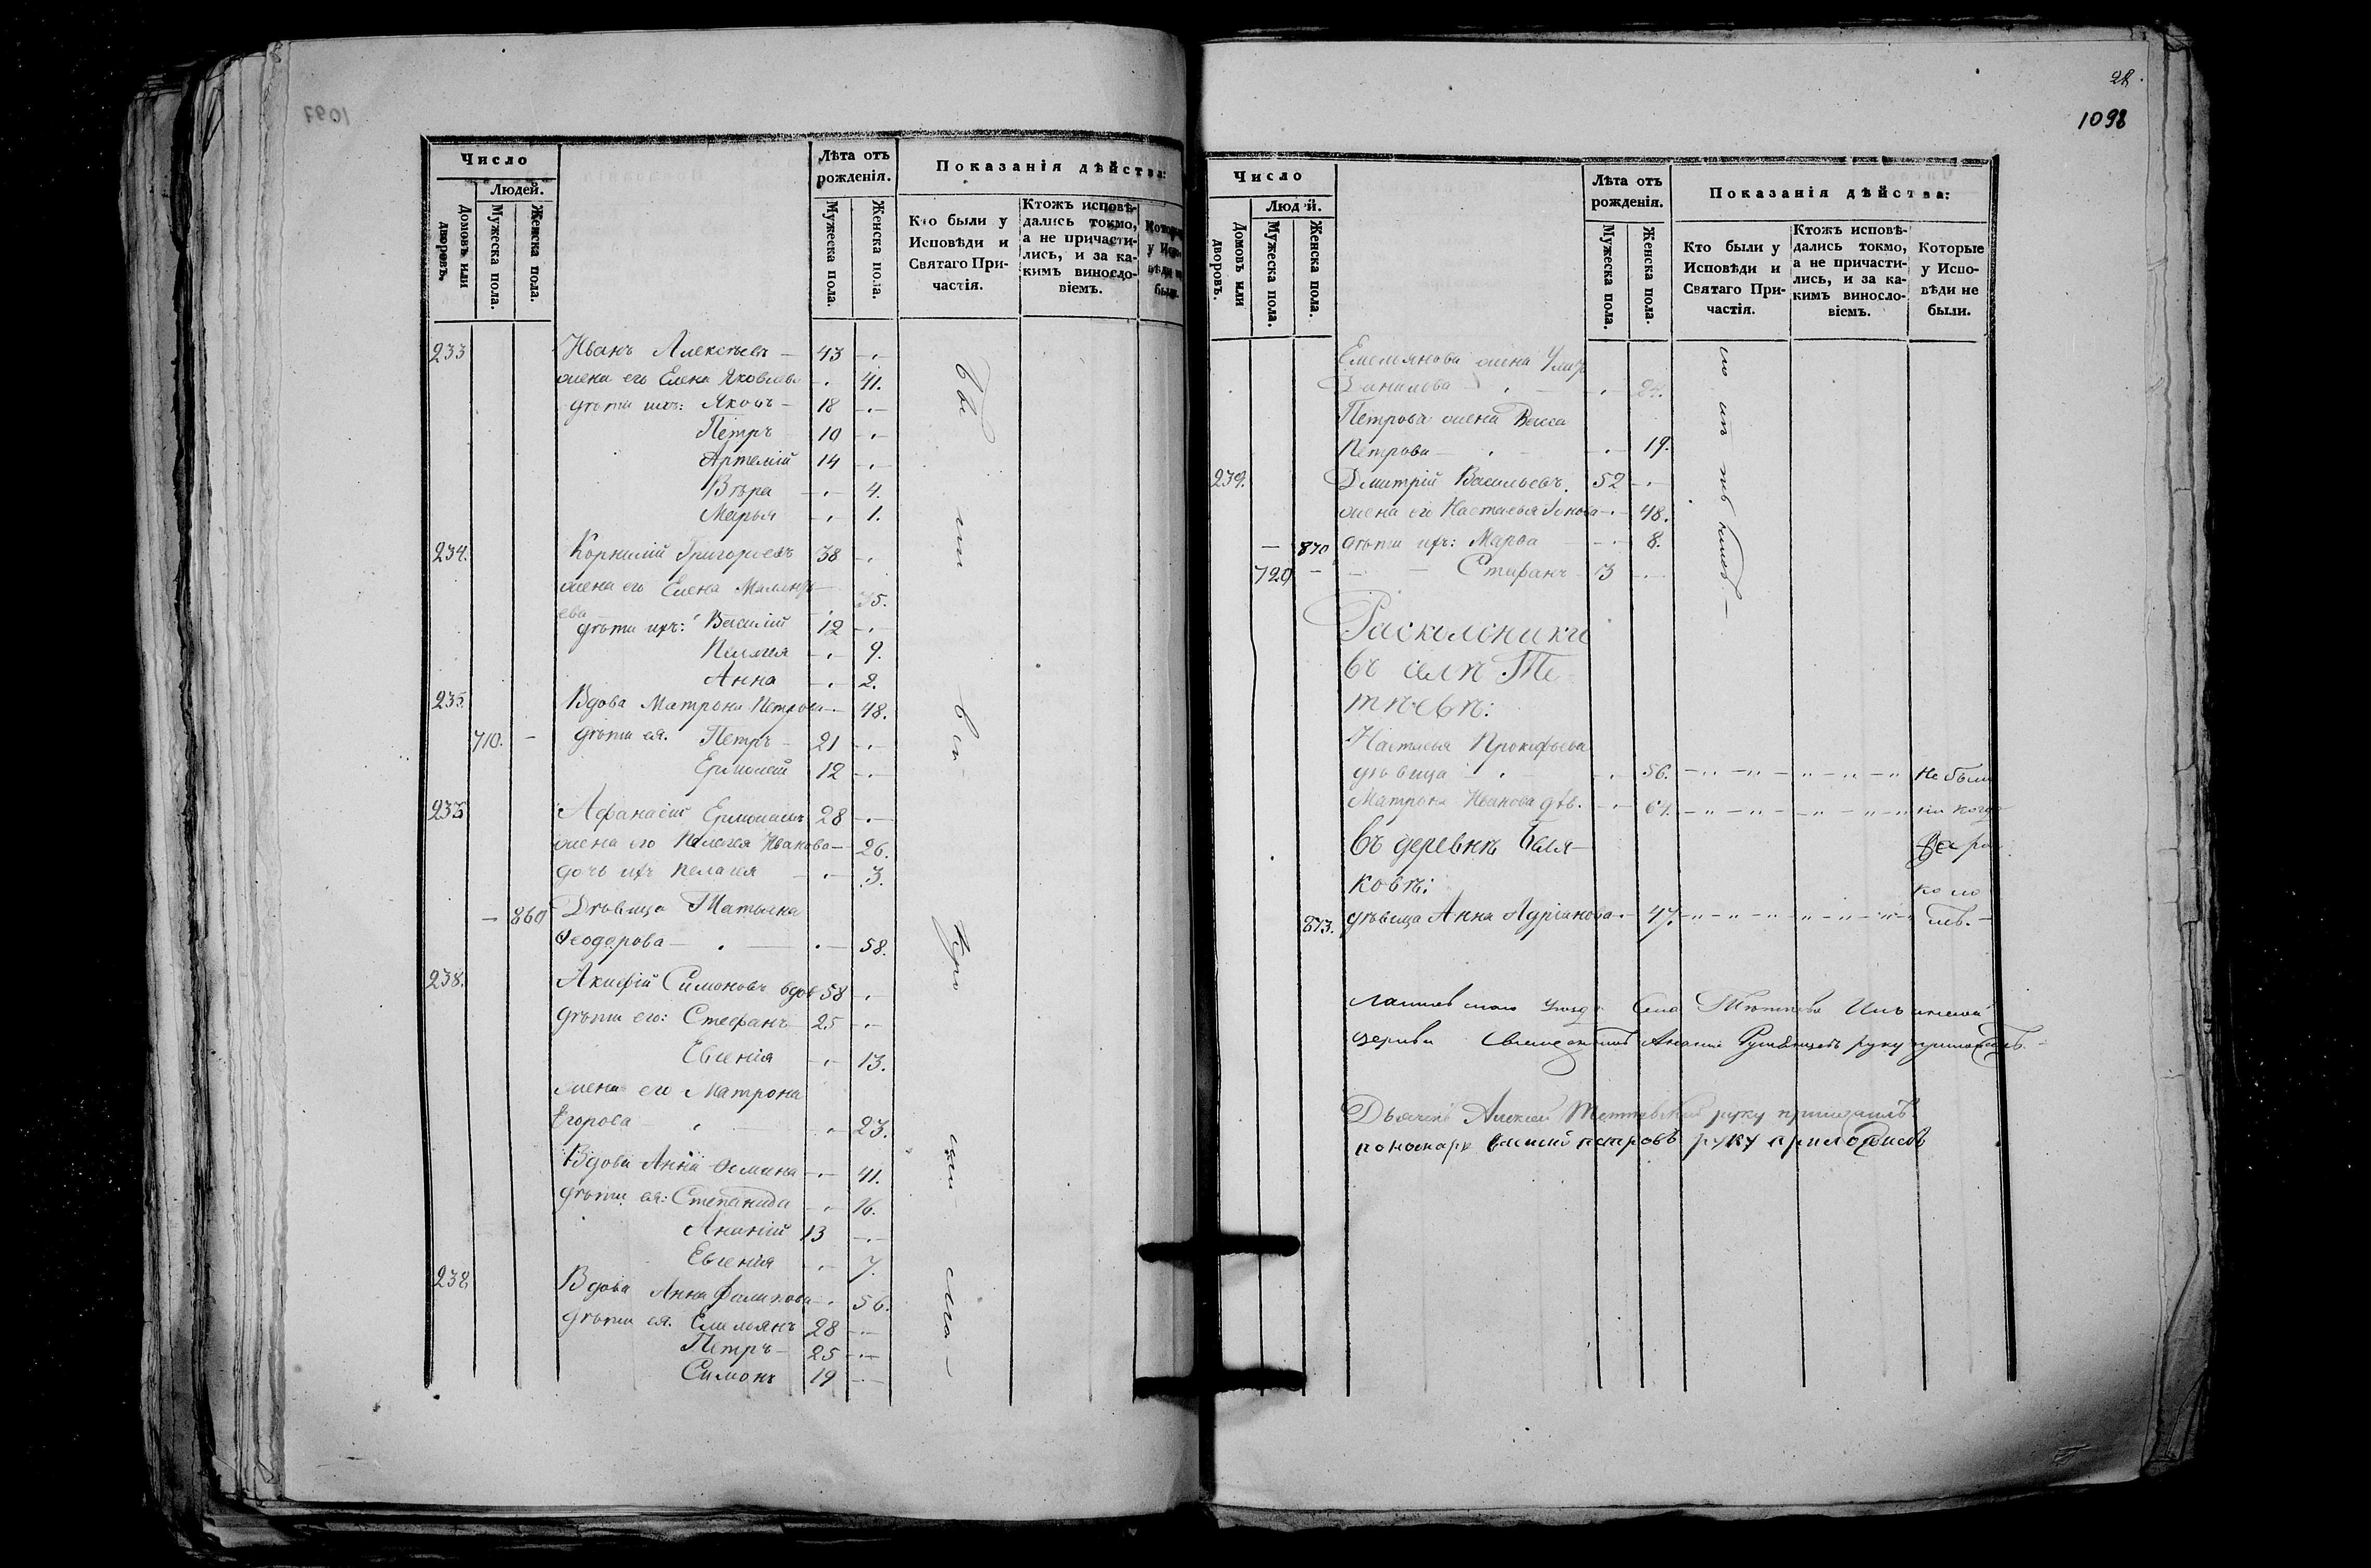 Число
Людей.
Домовъ или дворовъ.
Мужеска пола.
Женска пола.
Лѣта отъ рожденія.
Мужеска пола.
Женска пола.
Показанія дѣйства:
Кто были у Исповѣди и Святаго Причастія.
Ктожъ исповѣдались токмо, а не причастились, и за какимъ винословіемъ.
Которые у Исповѣди не были.
233 Иванъ Алексѣевъ — 43
жена его Елена Яковлева 41.
дѣти ихъ: Яковъ — 18
Петръ 10
Артемій 14
Вѣра 4.
Марья 1.
234. Корнилій Григорьевъ 38
жена его Елена 35.
дѣти ихъ: Василій 12
Пелагея 9.
Анна 2.
235. Вдова Матрона Петрова 48.
710. — дѣти ея. Петръ — 21
Ермолай 12
Афанасій Ермолаевъ 28
жена его Пелагея Иванова — 26.
дочь ихъ Пелагея 3.
— 860 Дѣвица Татьяна
Ѳеодорова — 58.
238. Акиндій Симоновъ вдов 58
дѣти его: Стефанъ 25
Евгенія 13.
жена его Матрона
Егорова 23.
Вдова Анна 41.
дѣти ея: Степанида 16.
Ананій 13
Евгенія 7.
238 Вдова Анна Филипова 56.
дѣти ея. Емельянъ 28
Петръ — 25
Симонъ 19
28.
1098
Число
Людей.
Домовъ или дворовъ.
Мужеска пола.
Женска пола.
Лѣта отъ рожденія.
Мужеска пола.
Женска пола.
Показанія дѣйства:
Кто были у Исповѣди и Святаго Причастія.
Ктожъ исповѣдались токмо, а не причастились, и за какимъ винословіемъ.
Которые у Исповѣди не были.
Емельянова жена
Данилова
Петрова жена Васса
Петрова 19.
239. Дмитрій Васильевъ. 52
жена его Настасья 48.
— 870 дѣти ихъ: Марѳа 8.
720 — Стефанъ 13
Раскольники
въ селѣ Те
тѣевѣ:
Настасья Прокофьева
дѣвица 56. не были
Матрона Иванова дѣв. 61. никогда
въ деревнѣ Беля
ковѣ:
873. дѣвица Анна Адріанова 47.
церкви Священникъ Ананій Румянцевъ руку приложилъ.
Дьячекъ Алексей руку приложилъ
пономарь петровъ руку приложилъ